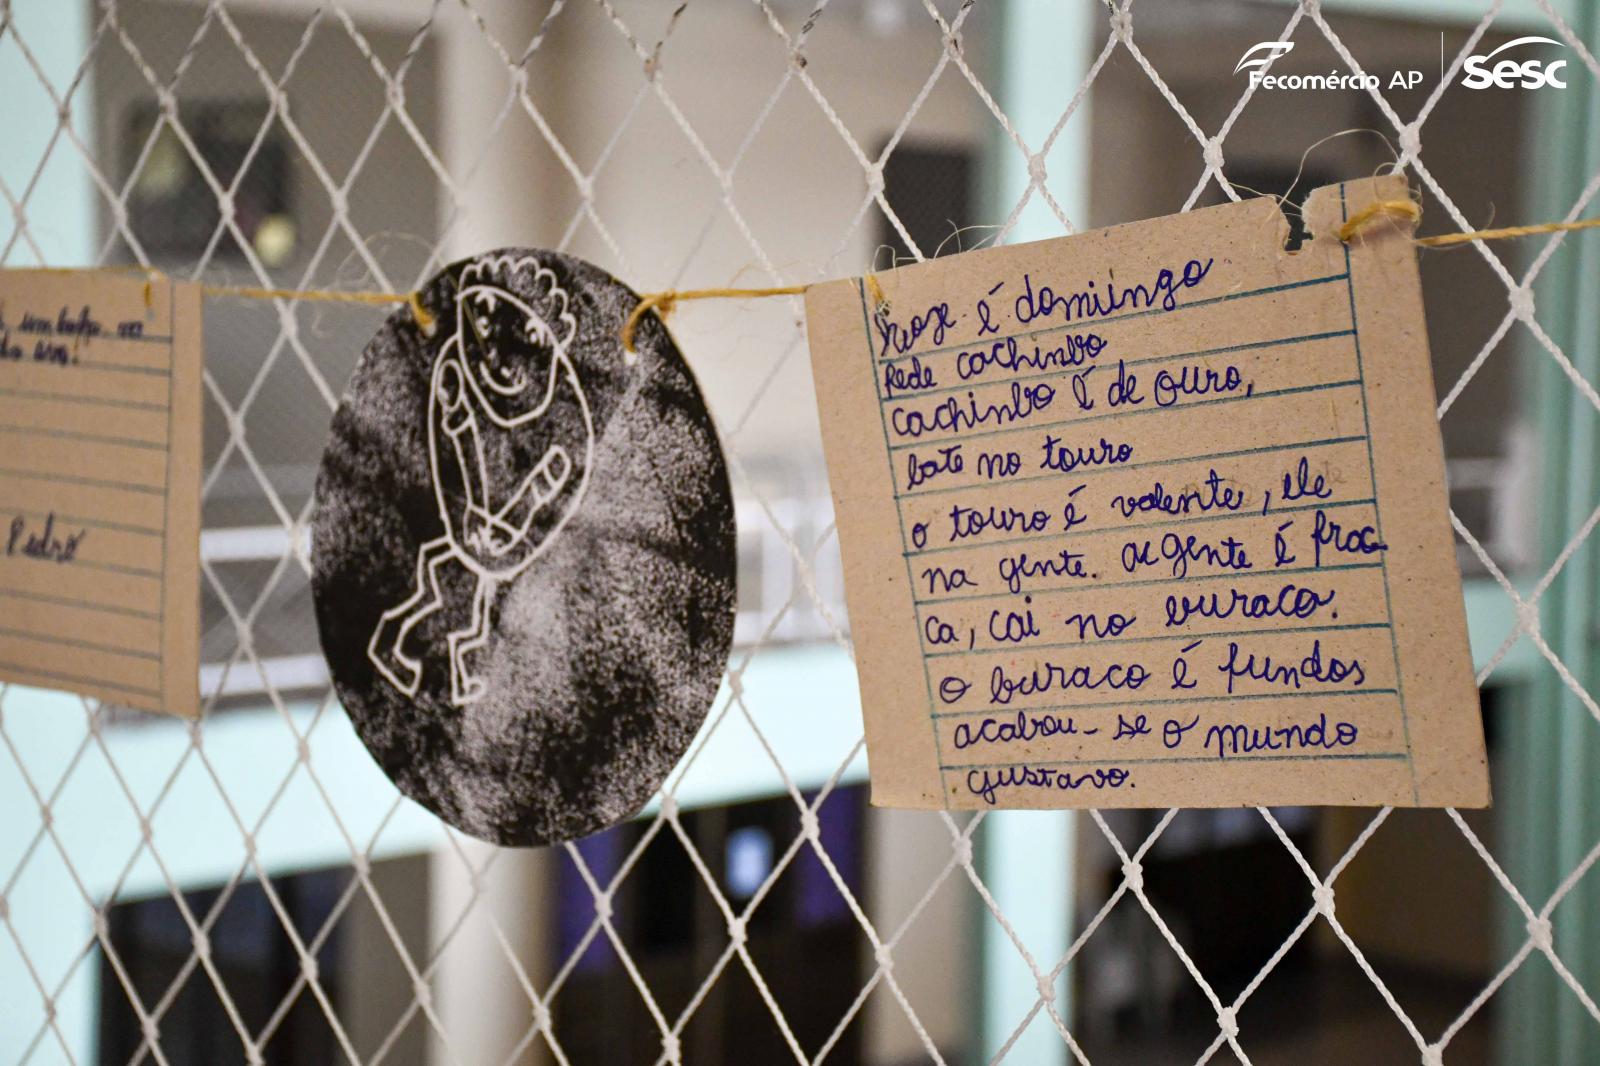 Fecomércio AP
Sesc
Pedro
hoje é domingo
Pede cachimbo
cachimbo é de ouro,
bate no touro
o touro é valente, ele
na gente. a gente é frac-
ca, cai no buraco.
o buraco é fundos
acabou-se o mundo
gustavo.